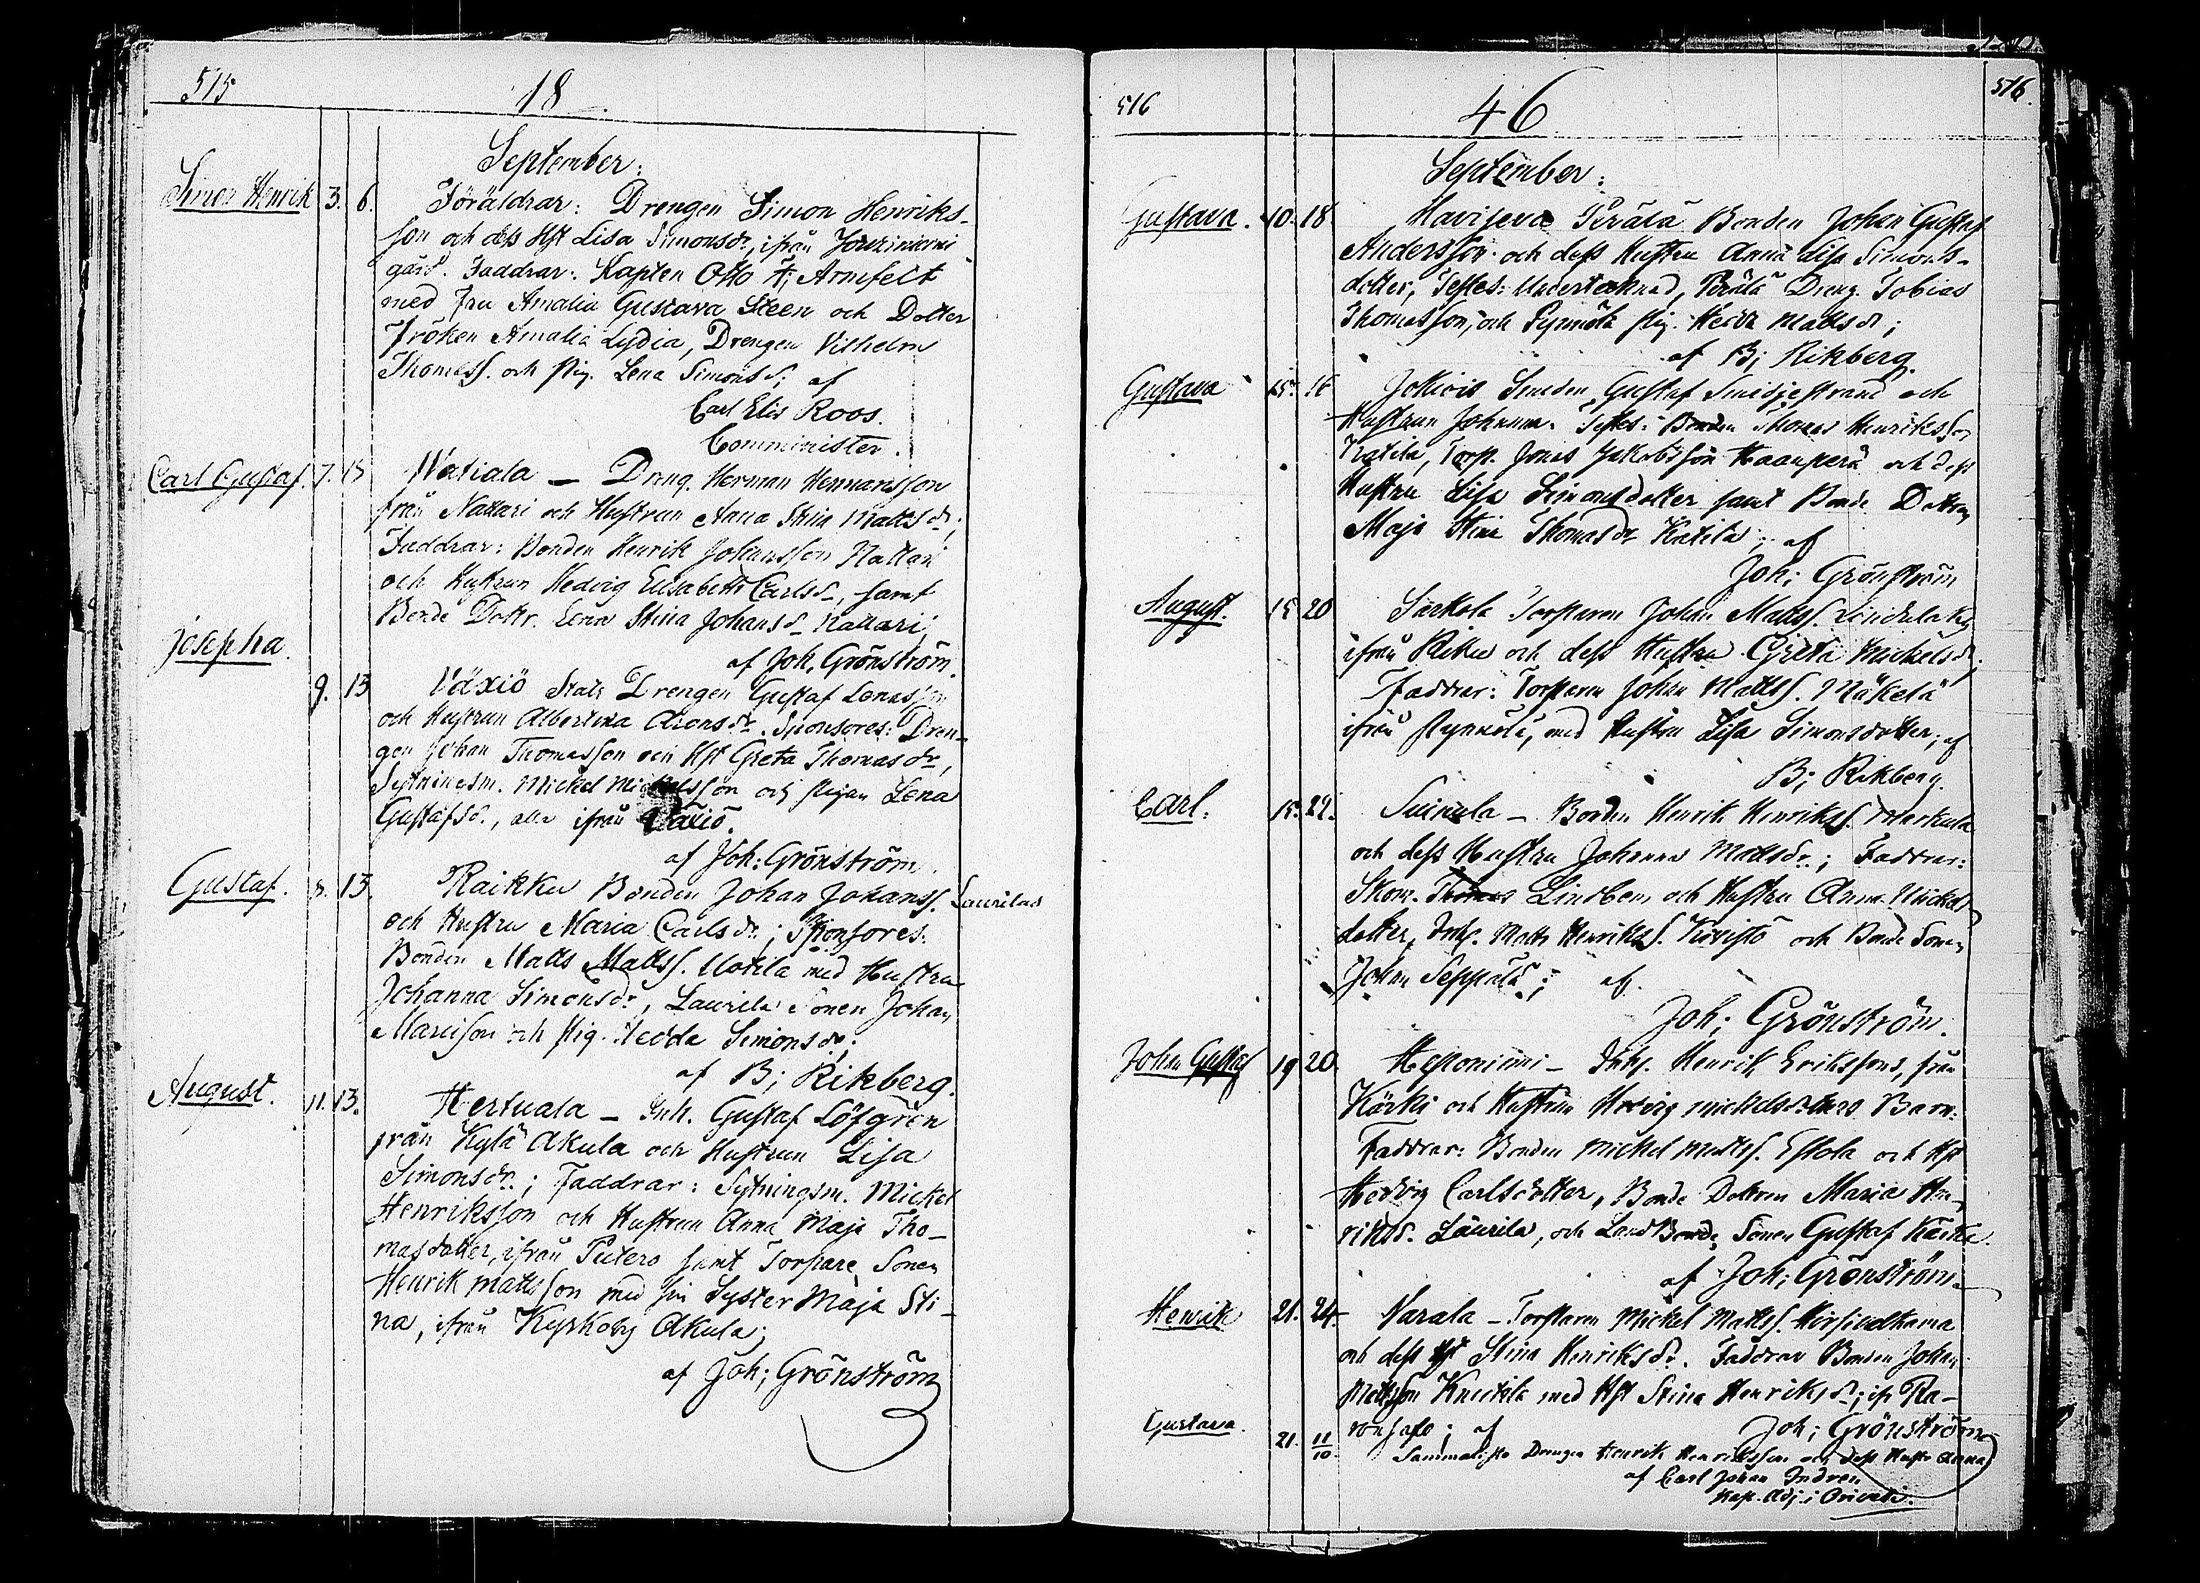 515
18
September:
Simon Henrik 3. 6. Föräldrar: Drengen Simon Henriks-
son och dess Hst Lisa Simonsdr, ifrån
gård. Faddrar: Kapten Otto Armfelt
med Fru Amalia Gustava Steen och Dotter
Fröken Amalia Lydia, Drengen Vilhelm
Thomass. och Pig. Lena Simonsd; af
Carl Elis Roos.
Comminister.
Carl Gustaf. 7. 13 Watiala — Dreng. Herman Hermansson
från Nattari och Hustrun Anna Stina Mattsdr;
Faddrar: Bonden Henrik Johansson Nattari
och Hustrun Hedvig Elisabeth Carlsd., samt
Bonde Dottr. Lena Stina Johansd. Nattari;
af Joh. Grönström.
Josepha. 9. 13 Växiö Stats Drengen Gustaf Lenasson
och Hustrun Albertina Aronsdr. Sponsores: Dren-
gen Johan Thomasson och Hst Greta Thomasdr,
Sytningsm. Mickel Mickelsson och Pigan Lena
Gustafsd., alla ifrån Växiö.
af Joh: Grönström.
Gustaf. 8. 13. Raikku Bonden Johan Johanss. Laurilas
och Hustru Maria Carlsdr; Sponsores:
Bonden Matts Mattss. Uotila med Hustru
Johanna Simonsdr, Laurila Sonen Johan
och Pig. Hedda Simonsdr;
af B; Rikberg.
August. 11. 13. Hertuala — Inh. Gustaf Löfgren
från Kylä Akula och Hustrun Lisa
Simonsdr.; Faddrar: Sytningsm. Mickel
Henriksson och Hustrun Anna Maja Tho-
masdotter, ifrån samt Torpare Sonen
Henrik Mattsson med sin Syster Maja Sti-
na, ifrån Kyrkoby Akula;
af Joh; Grönström
516
46
516.
September:
Gustava. 10. 18. Perälä Bonden Johan Gustaf
Andersson och dess Hustru Anna Lisa Simons-
dotter, Testes: Undertecknad, Perälä Dreng. Tobias
Thomasson, och Pynnölä Pig. Hedda Mattsdr;
af B; Rikberg.
Gustava 15. 16 Smeden Gustaf Smidjestrand och
Hustrun Johanna. Testes: Bonden Thomas Henriksson
Katila, Torp. Jonas Jakobsson Haanperä och dess
Hustru Lisa Simonsdotter samt Bonde Dottren
Maja Stina Thomasdr Katila; af
Joh; Grönström
August. 15 20 Sarkola Torparen Johan Mattss.
ifrån Riku och dess Hustru Greta Mickelsdr;
Faddrar: Torparen Johan Mattss. Mäkelä
ifrån Pynnölä, med Hustru Lisa Simonsdotter; af
B; Rikberg.
Carl. 15. 22. Suinula — Bonden Henrik Henrikss.
och dess Hustru Johanna Mattsdr.; Faddrar:
Skom. Lindberg och Hustru Anna Mickels
dotter, Inhs. Matts Henrikss. Kivistö och Bonde Sonen
Johan Seppälä; af
Joh; Grönström.
Johan Gustaf 19 20. Haponiemi — Inhs. Henrik Erikssons, från
Kärki och Hustrun Hedvig Mickelsdotters Barn.
Faddrar: Bonden Mickel Mattss. Eskola och Hst
Hedvig Carlsdotter, Bonde Dottren Maria Hen-
riksd. Laurila, och Landbonde Sonen Gustaf
af Joh; Grönström.
Henrik 21. 24. Varala — Torparen Mickel Mattss.
och dess Hst Stina Henriksdr. Faddrar Bonden Johan
Mattsson Knuutila med Hst Stina Henriksdr; ifr Ra-
; af Joh; Grönström
Gustava. 21. 11/10. Sammalisto Drengen Henrik Henriksson och dess Hustru Anna
af Carl Johan Indren
Kap. Adj. i Orivesi.